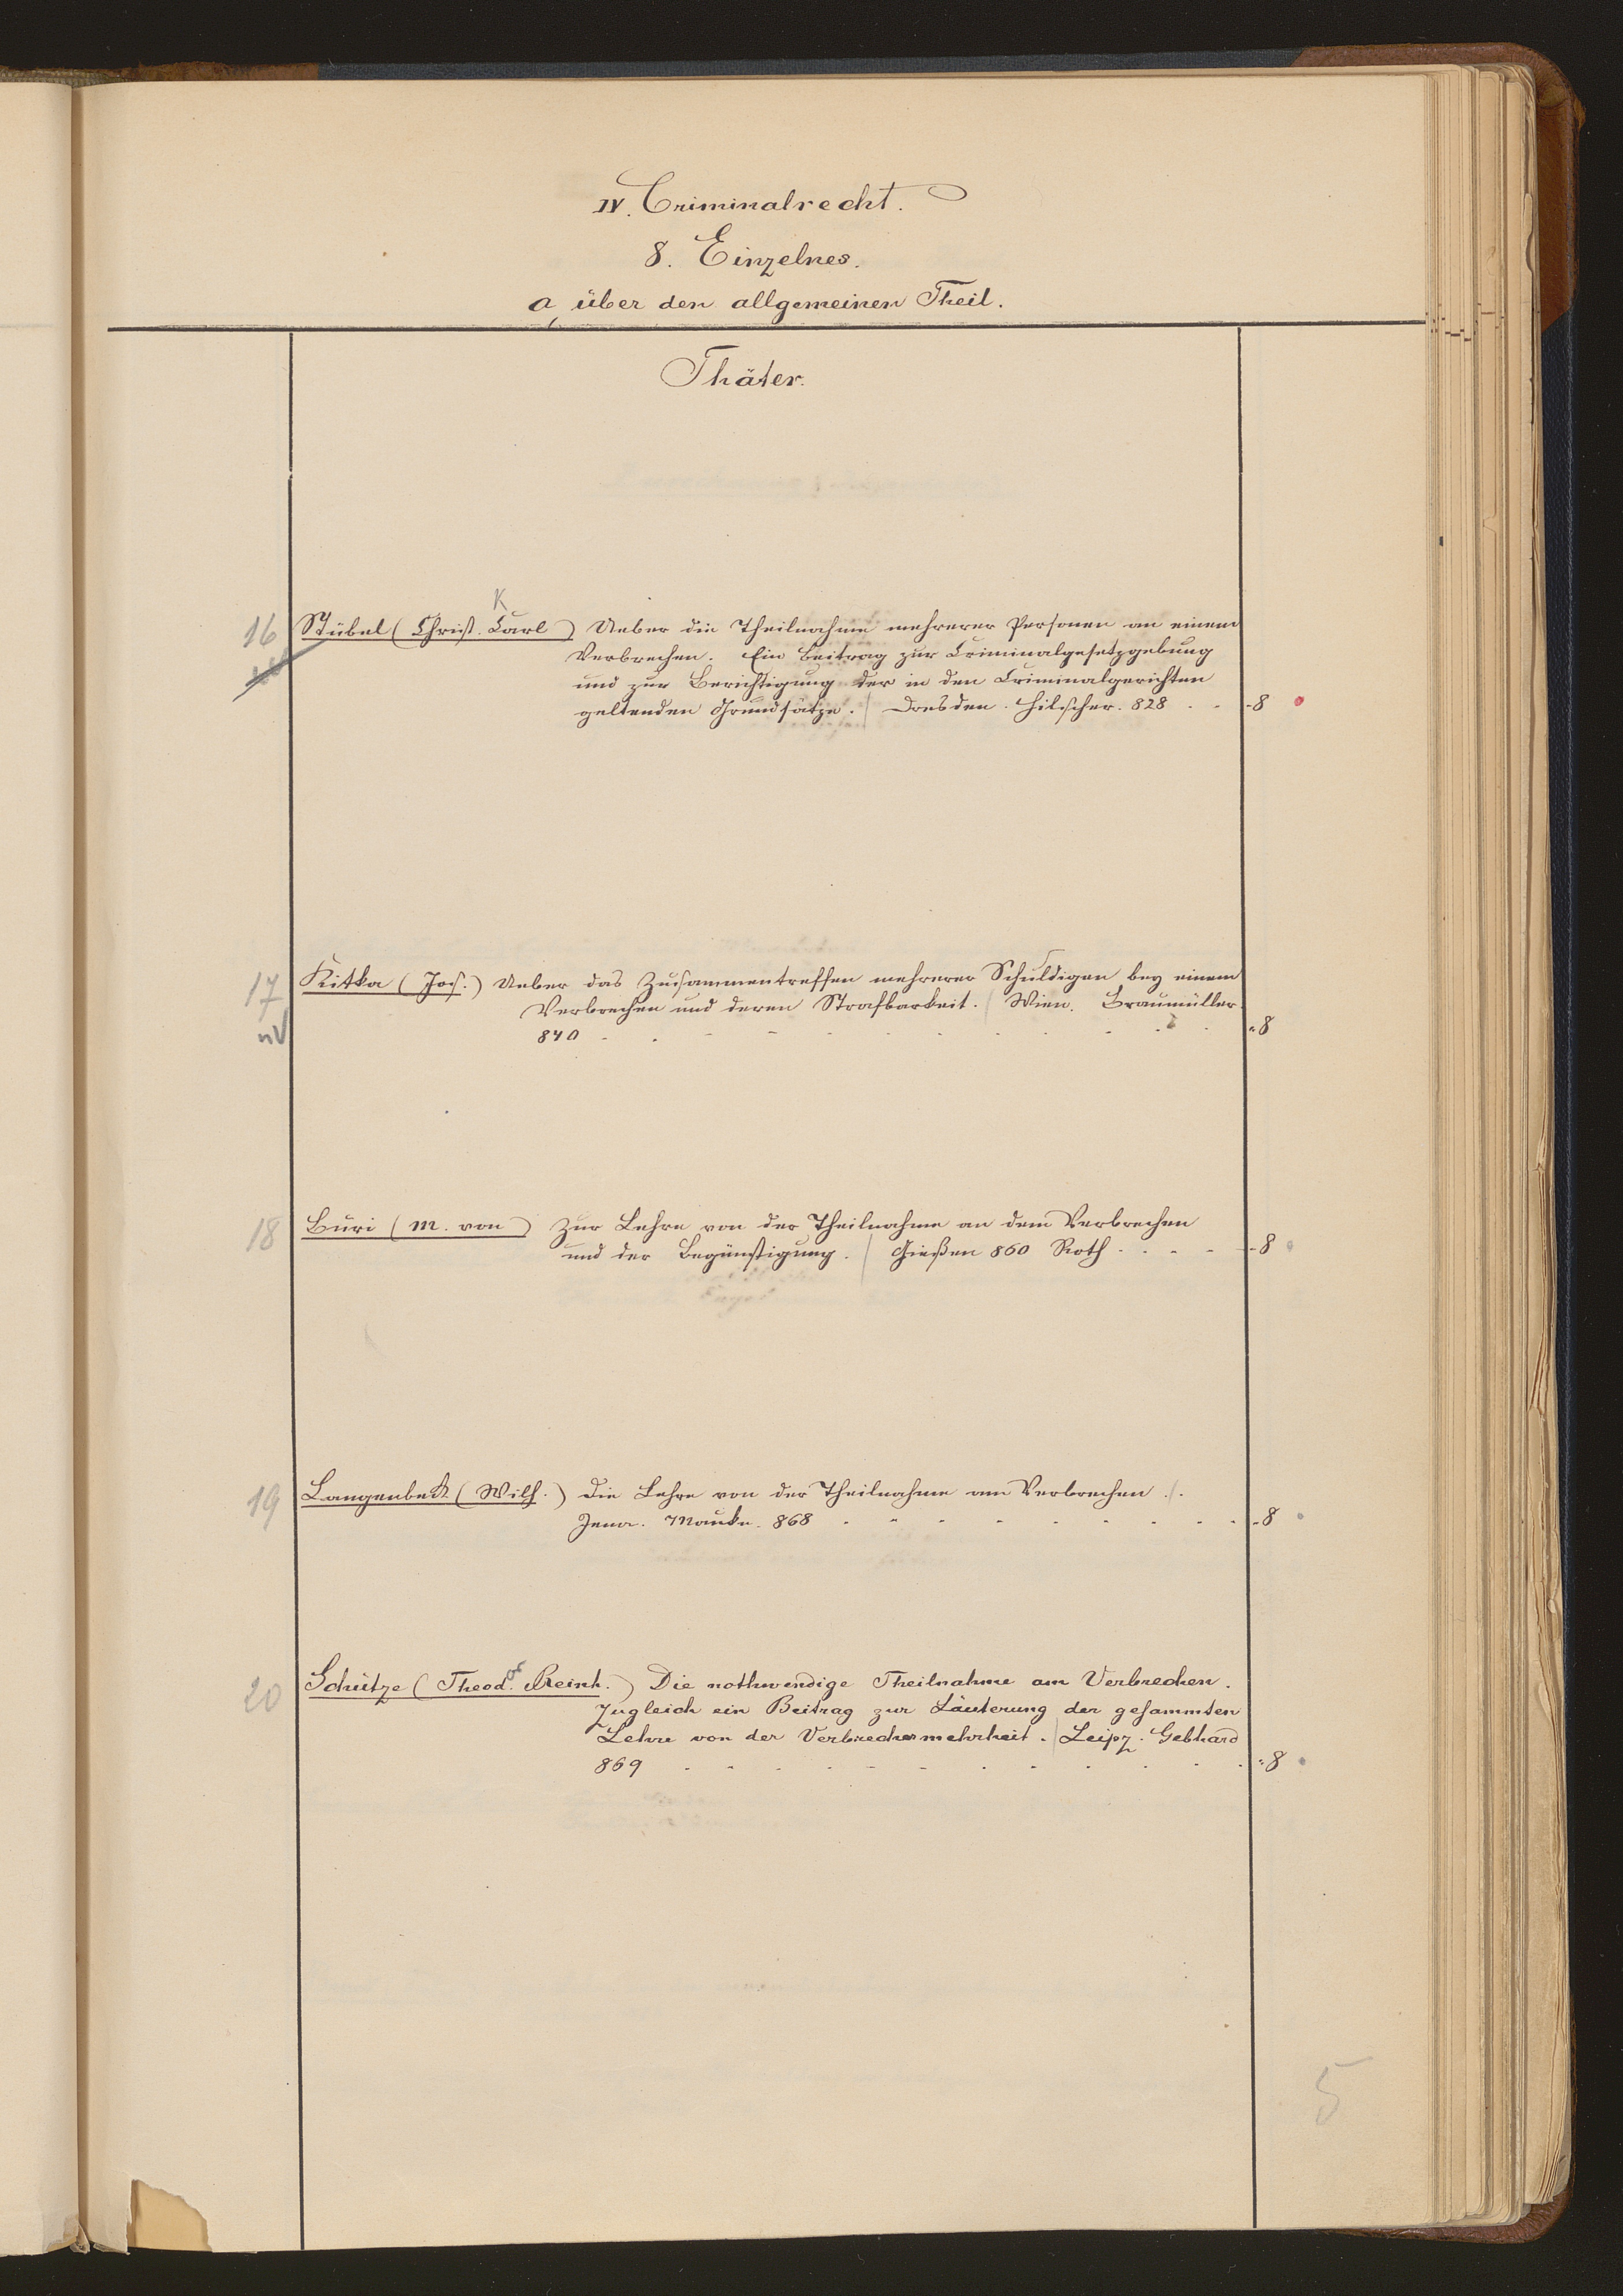 IV. Criminalrecht.
8. Einzelnes.
a, über den allgemeinen Theil.
Thäter.
K
16 Stübel (Christ. Carl) Ueber die Theilnahme mehrerer Personen an einem
Verbrechen. Ein Beitrag zur Criminalgesetzgebung
und zur Berichtigung der in den Criminalgerichten
geltenden Grundsätze. | Dresden. Hilscher. 828 . . -8
17 Kitka (Jos.) Ueber das Zusammentreffen mehrerer Schuldigen bey einem
Verbrechen und deren Strafbarkeit. | Wien. Braumüller.
840 - . - - . . . . . . . . "8
18 Buri (M. von) Zur Lehre von der Theilnahme an dem Verbrechen
und der Begünstigung. | Gießen 860 Roth . . - - -8
19 Langenbeck (Wilh.) Die Lehre von der Theilnahme am Verbrechen. |.
Jena. Mauke. 868 . . . . . . . . . "8
20 Schütze (Theod. Reinh.) Die nothwendige Theilnahme am Verbrechen.
Zugleich ein Beitrag zur Läuterung der gesammten
Lehre von der Verbrechermehrheit. | Leipz. Gebhard
869 . . . . . . . . . . . "8
5